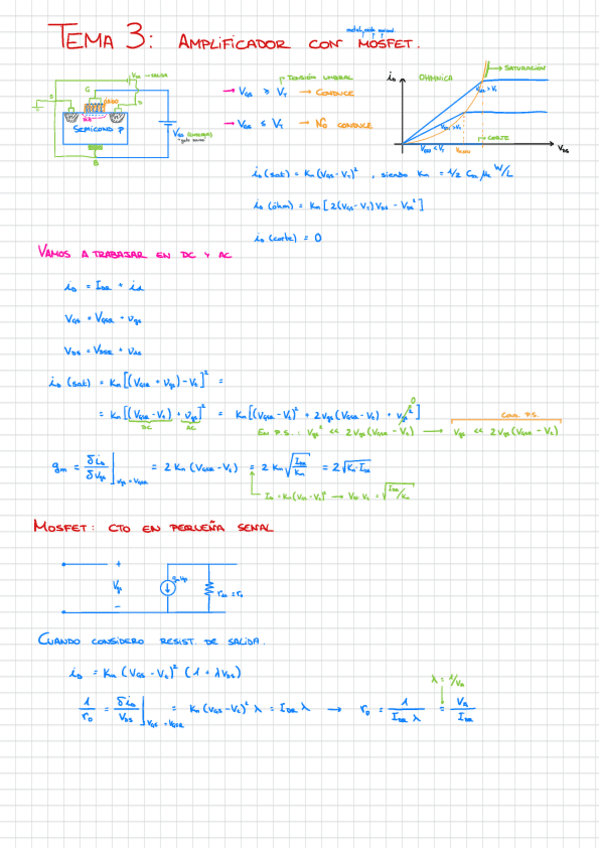 TEMA 3: AMPLIFICADOR CON MOSFET.
G
ÓXIDO
S
D
SEMICOND P
B
TENSIÓN UMBRAL
→ V_GS ≥ V_T → CONDUCE
→ V_GS ≤ V_T → NO CONDUCE
i_D
OHMNICA
SATURACIÓN
CORTE
V_DS
i_D (sat) = K_n (V_GS - V_t)², siendo K_n = 1/2 C_ox μ_n W/L
i_D (óhm) = K_n [2(V_GS - V_T) V_DS - V_DS²]
i_D (corte) = 0
VAMOS A TRABAJAR EN DC Y AC
i_D = I_DQ + i_d
V_GS = V_GSQ + v_gs
V_DS = V_DSQ + v_ds
i_D (sat) = K_n [(V_GSQ + v_gs) - V_t]² =
= K_n [(V_GSQ - V_t) + v_gs]² = K_n [(V_GSQ - V_t)² + 2v_gs (V_GSQ - V_t) + v_gs²]
0
DC
AC
COND. P.S.
En P.S.: v_gs² << 2v_gs (V_GSQ - V_t) → v_gs² << 2v_gs (V_GSQ - V_t)
g_m = δi_D/δv_gs | V_gs = V_GSQ = 2 K_n (V_GSQ - V_t) = 2 K_n √(I_DQ/K_n) = 2√(K_n I_DQ)
I_D = K_n (V_GS - V_t)² → V_GS - V_t = √(I_DQ/K_n)
MOSFET: CTO EN PEQUEÑA SEÑAL
+
V_gs
-
g_m v_gs
r_ds = r_o
CUANDO CONSIDERO RESIST. DE SALIDA.
i_D = K_n (V_GS - V_t)² (1 + λV_DS)
λ = 1/V_A
1/r_o = δi_D/V_DS | V_GS = V_GSQ = K_n (V_GS - V_t)² λ = I_DQ λ → r_o = 1/(I_DQ λ) = V_A/I_DQ